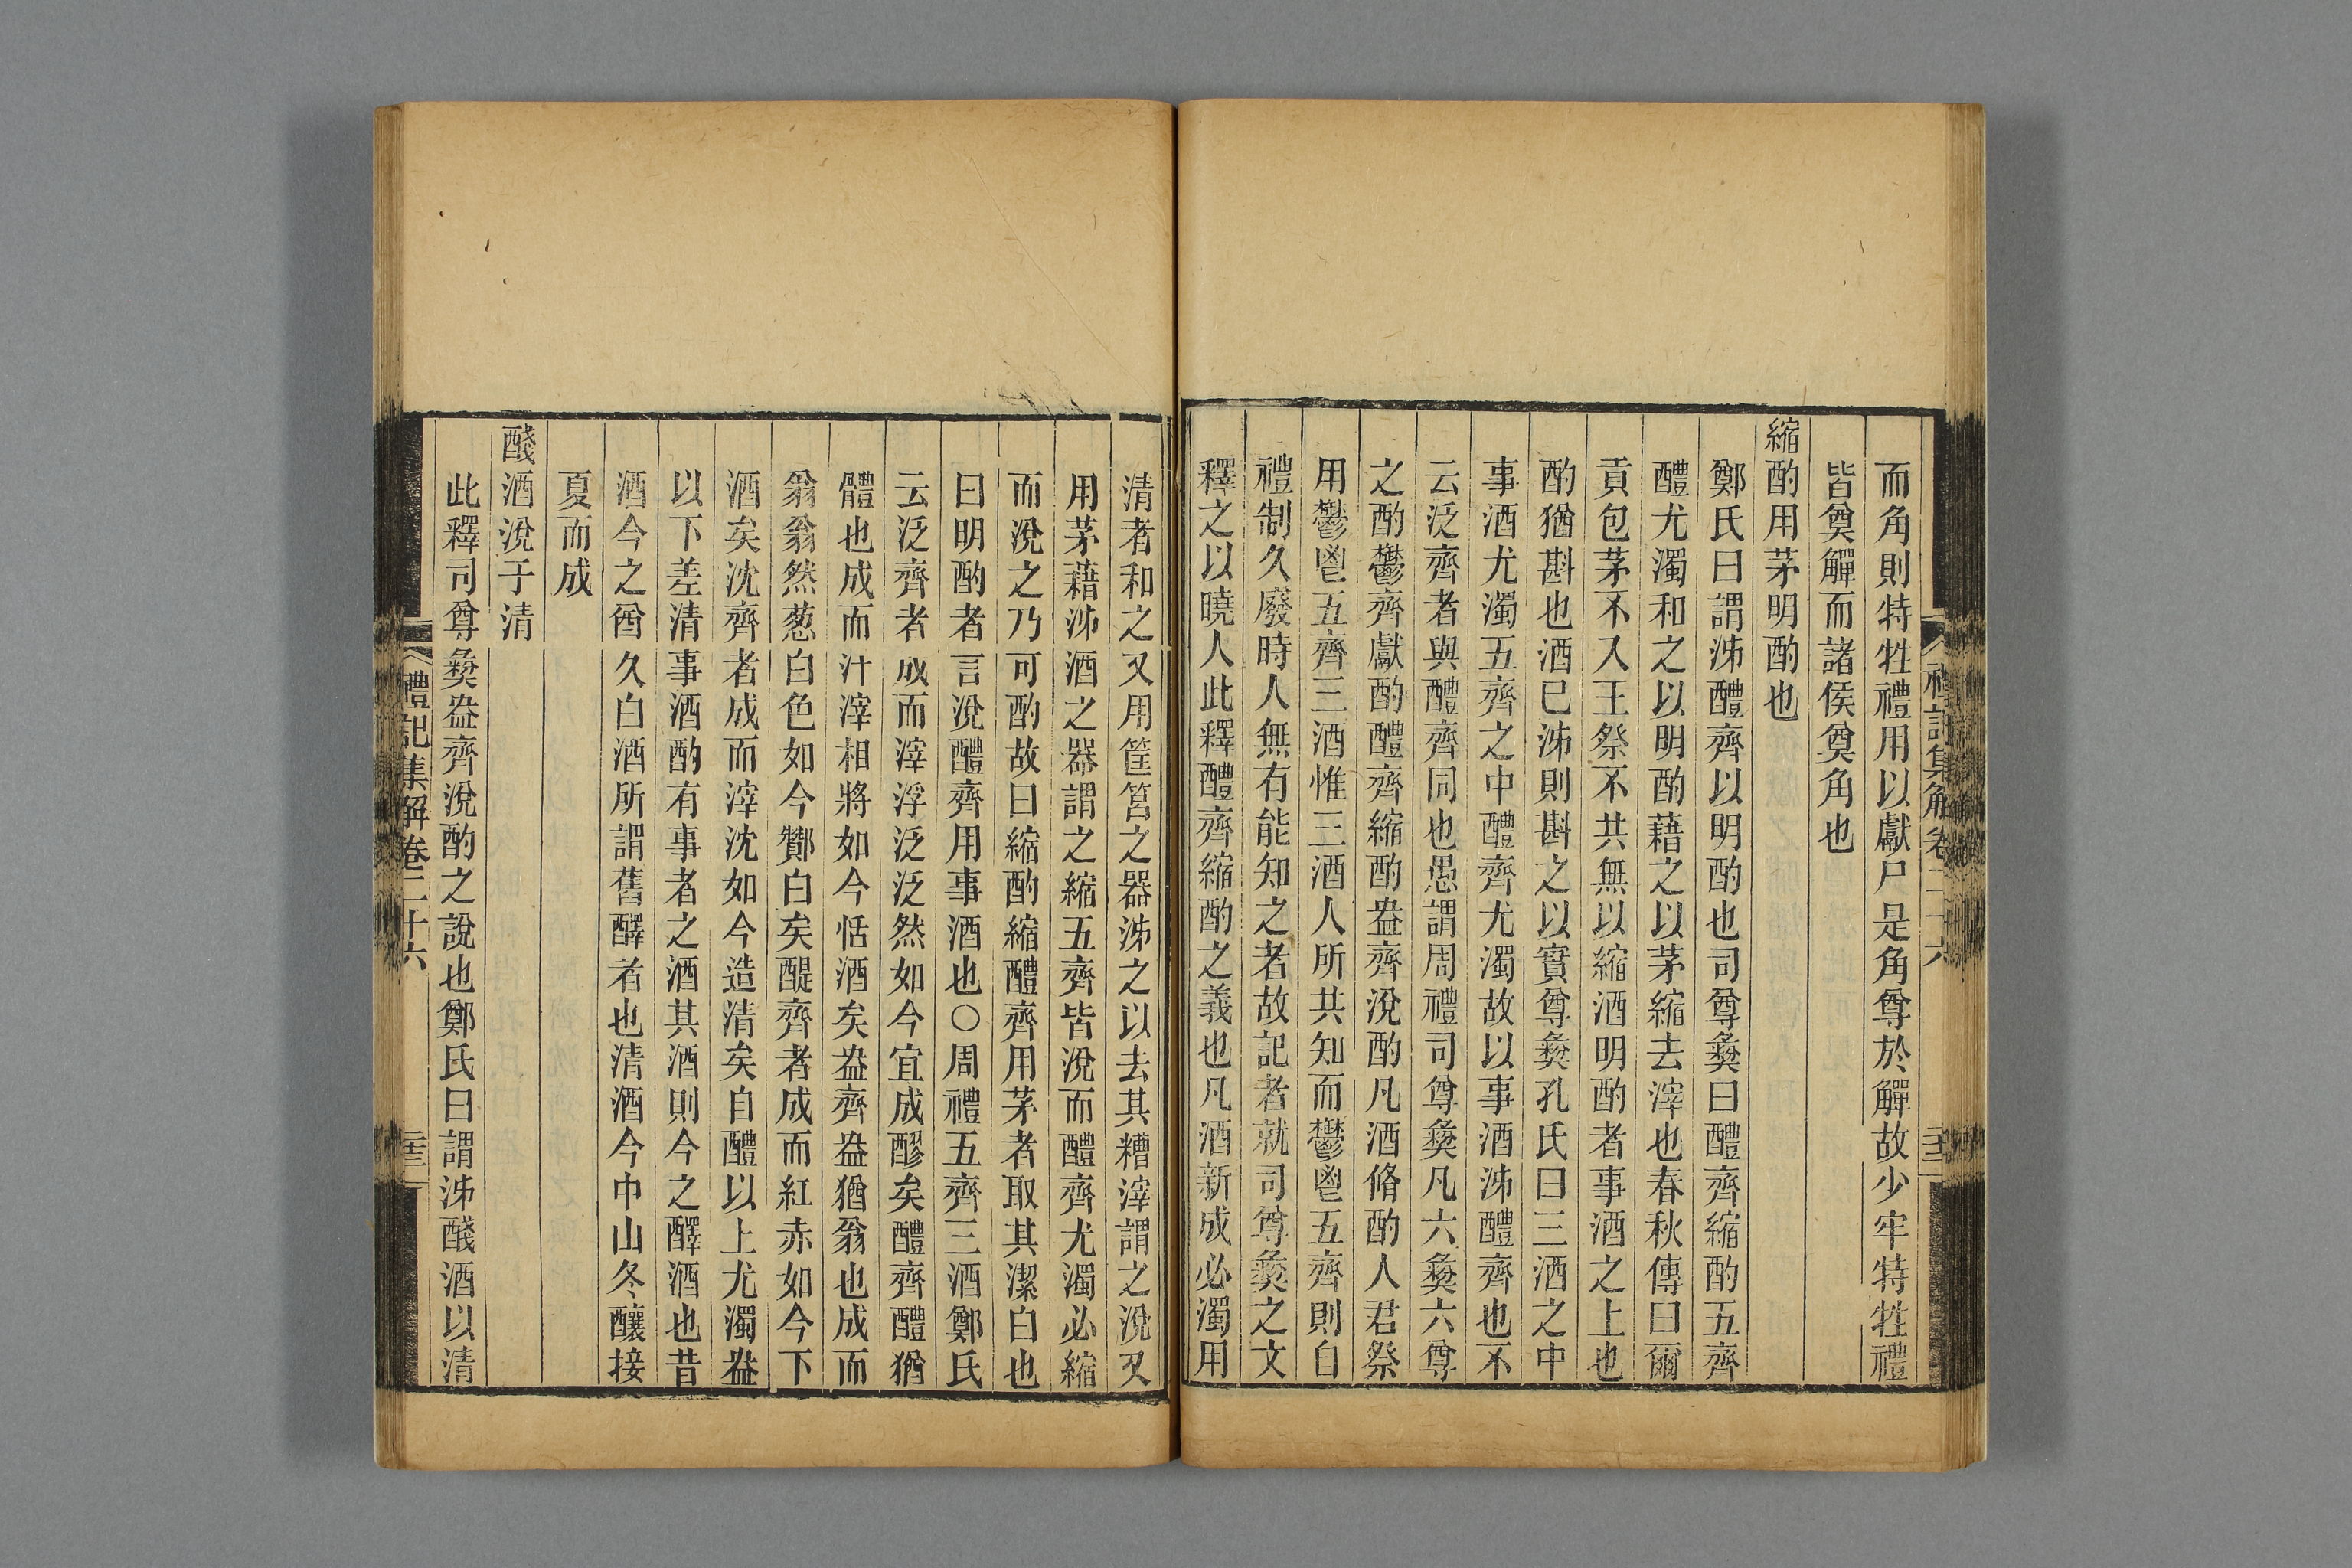 禮記集解卷二十六
而角則特牲禮用以獻尸是角尊於觶故少牢特牲禮
皆奠觶而諸侯奠角也
縮酌用茅明酌也
鄭氏曰謂泲醴齊以明酌也司尊彝曰醴齊縮酌五齊
醴尤濁和之以明酌藉之以茅縮去滓也春秋傳曰爾
貢包茅不入王祭不共無以縮酒明酌者事酒之上也
酌猶斟也酒已泲則斟之以實尊彝孔氏曰三酒之中
事酒尤濁五齊之中醴齊尤濁故以事酒泲醴齊也不
云泛齊者與醴齊同也愚謂周禮司尊彝凡六彝六尊
之酌鬱齊獻酌醴齊縮酌盎齊涗酌凡酒脩酌人君祭
用鬱鬯五齊三酒惟三酒人所共知而鬱鬯五齊則自
禮制久廢時人無有能知之者故記者就司尊彝之文
釋之以曉人此釋醴齊縮酌之義也凡酒新成必濁用
清者和之又用筐筥之器泲之以去其糟滓謂之涗又
用茅藉泲酒之器謂之縮五齊皆涗而醴齊尤濁必縮
而涗之乃可酌故曰縮酌縮醴齊用茅者取其潔白也
曰明酌者言涗醴齊用事酒也○周禮五齊三酒鄭氏
云泛齊者成而滓浮泛泛然如今宜成醪矣醴齊醴猶
體也成而汁滓相將如今恬酒矣盎齊盎猶翁也成而
翁翁然葱白色如今酇白矣醍齊者成而紅赤如今下
酒矣沈齊者成而滓沈如今造清矣自醴以上尤濁盎
以下差清事酒酌有事者之酒其酒則今之醳酒也昔
酒今之酋久白酒所謂舊醳者也清酒今中山冬釀接
夏而成
醆酒涗于清
此釋司尊彝盎齊涗酌之說也鄭氏曰謂泲醆酒以清
禮記集解卷二十六